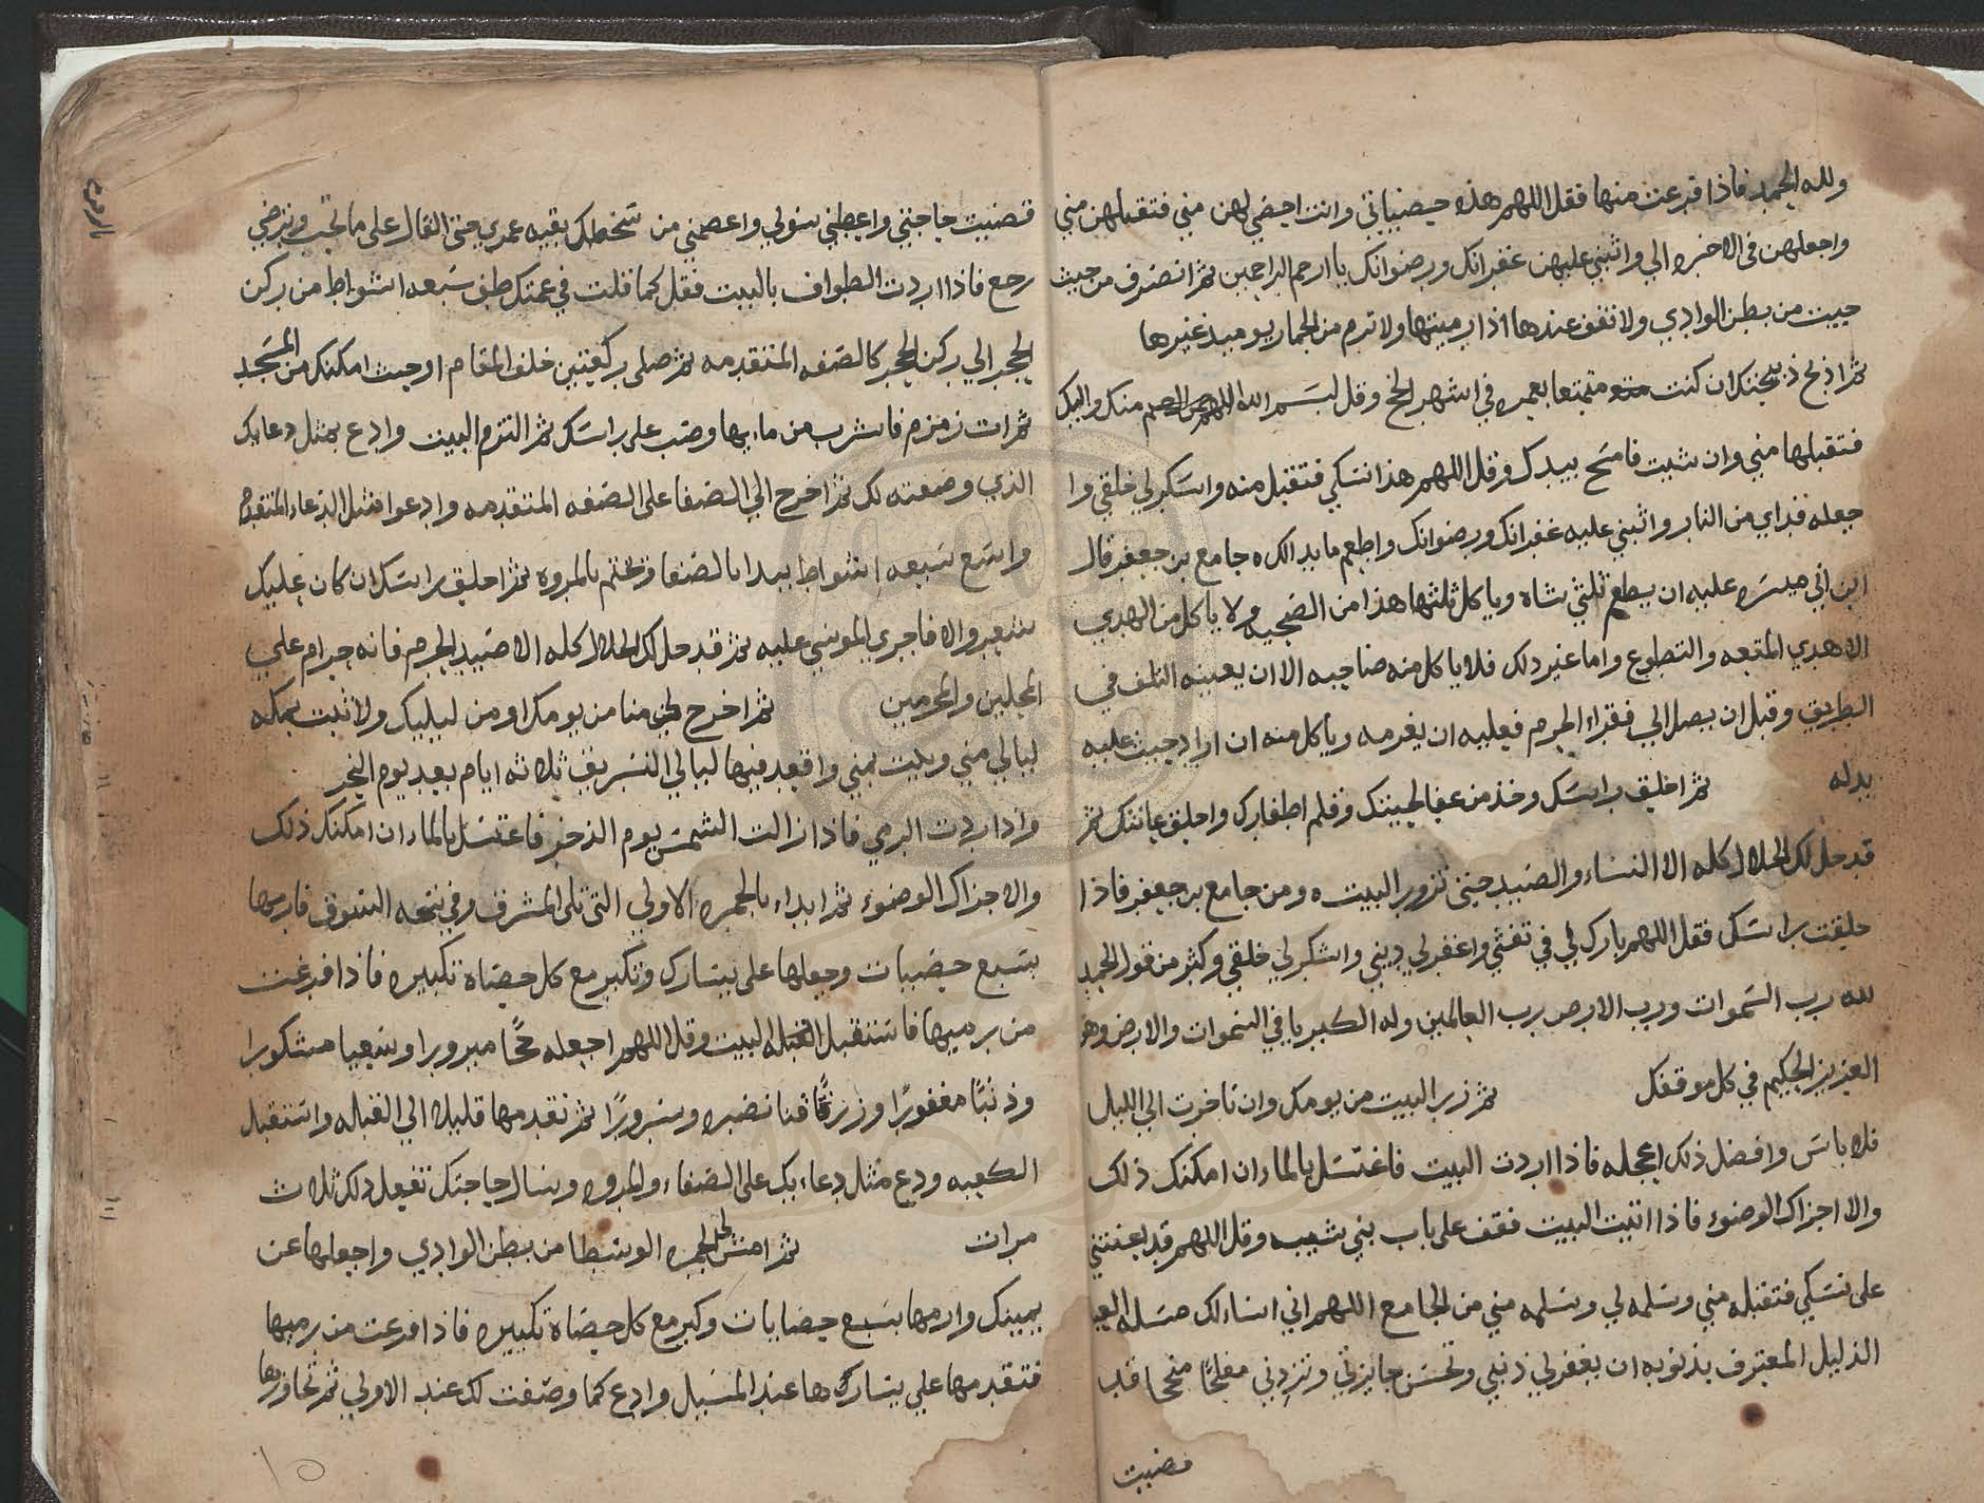 ولله الحمد فاذا فرغت منها فقل اللهم هذه حصياتي وانت احصي لهن مني فتقبلهن مني
واجعلهن في الاخره لي واثبني عليهن غفرانك ورضوانك يا ارحم الراحمين ثم انصرف من حيث
جييت من بطن الوادي ولا تقف عندها اذا رميتها ولا ترم من الجمار يوميذ غيرها
ثم اذبح ذبيحتك ان كنت متمتعا بعمره في اشهر الحج وقل بسم الله اللهم منك واليك
فتقبلها مني وان شيت فامسح بيدك وقل اللهم هذا نسكي فتقبل منه واشكر لي خلقي وا
جعله فداي من النار واثبني عليه غفرانك ورضوانك واطعم ما بدالك ه جامع بن جعفر قال
ابن ابي ميسره عليه ان يطعم ثلثي شاه وياكل ثلثها هذا من الضحيه ولا ياكل من الهدي
الا هدي المتعه والتطوع واما غير ذلك فلا ياكل منه صاحبه الا ان يعينه التلف في
الطريق وقبل ان يصل الي فقراء الحرم فعليه ان يغرمه وياكل منه ان اراد حيث عليه
بدله ثم احلق راسك وخذ من عفا لحيتك وقلم اظفارك واحلق عانتك ثم
قد حل لك الحلال كله الا النساء والصيد حتى تزور البيت ه ومن جامع بن جعفر فاذا
حلقت راسك فقل اللهم بارك لي في تفثي واغفر لي ديني واشكر لي خلقي وكثر من قول الحمد
لله رب السموات ورب الارض رب العالمين وله الكبريا في السموات والارض وهو
العزيز الحكيم في كل موقفك ثم زر البيت من يومك وان تاخرت الي الليل
فلا باس وافضل ذلك اعجله فاذا اردت البيت فاغتسل بالماء ان امكنك ذلك
والا اجزاك الوضوء فاذا اتيت البيت فقف على باب بني شيبه وقل اللهم قد بعثتني
على نسكي فتقبله مني وسلمه لي وسلمه مني من الجامع اللهم اني اساءلك مسله العبد
الذليل المعترف بذنوبه ان يغفر لي ذنبي وتحسن جايزتي وتردني مفلحا منجحا قد
قضيت
قضيت حاجتي واعطني سولي واعصمني من سخطك بقيه عمري حتى القاك على ما تحب وترضي
رجع فاذا اردت الطواف بالبيت فقل كما قلت في عمتك طف سبعه اشواط من ركن
الحجر الي ركن الحجر كالصفه المتقدمه ثم صلي ركعتين خلف المقام او حيث امكنك من المسجد
ثم ات زمزم فاشرب من ماءيها وصب على راسك ثم التزم البيت وادع بمثل دعايك
الذي وضعته لك ثم اخرج الي الصفا على الصفه المتقدمه وادعوا مثل الدعاء المتقدم
واسع سبعه اشواط يبدا بالصفا وتختم بالمروه ثم احلق راسك ان كان عليك
شعر والا فاجري الموسي عليه ثم قد حل لك الحلال كله الا صيد الحرم فانه حرام علي
المحلين والمحرمين ثم اخرج منا من يومك او من ليليك ولا تبت بمكه
ليالي مني وبيت بمني واقعد فيها ليالي التشريق ثلاثه ايام بعد يوم النحر
واذا اردت الرمي فاذا زالت الشمس يوم فاغتسل بالماء ان امكنك ذلك
والا جزاك الوضوء ثم ابداء بالجمره الاولي التي تلي المشرق وفي فارمها
بسبع حصيات وجعلها على يسارك وتكبر مع كل حصاه تكبيره فاذا فرغت
من رميها فاستقبل القبله البيت وقل اللهم اجعله حجًا مبرورا وسعيا مشكورا
وذنبًا مغفورًا ورزقًا قنا نضره وسرورًا ثم تقدمها قليلا الي القبله واستقبل
الكعبه ودع مثل دعاءيك على الصفاء والمروه وتسال حاجتك تفعل ذلك ثلاث
مرات ثم امش الي الجمره الوسطا من بطن الوادي واجعلها عن
يمينك وارمها بسبع حصايات وكبر مع كل حصاه تكبيره فاذا فرغت من رميها
فتقدمها علي يسارك ها عند المسيل وادع كما وصفت لك عند الاولي ثم تجاوزها
١٥